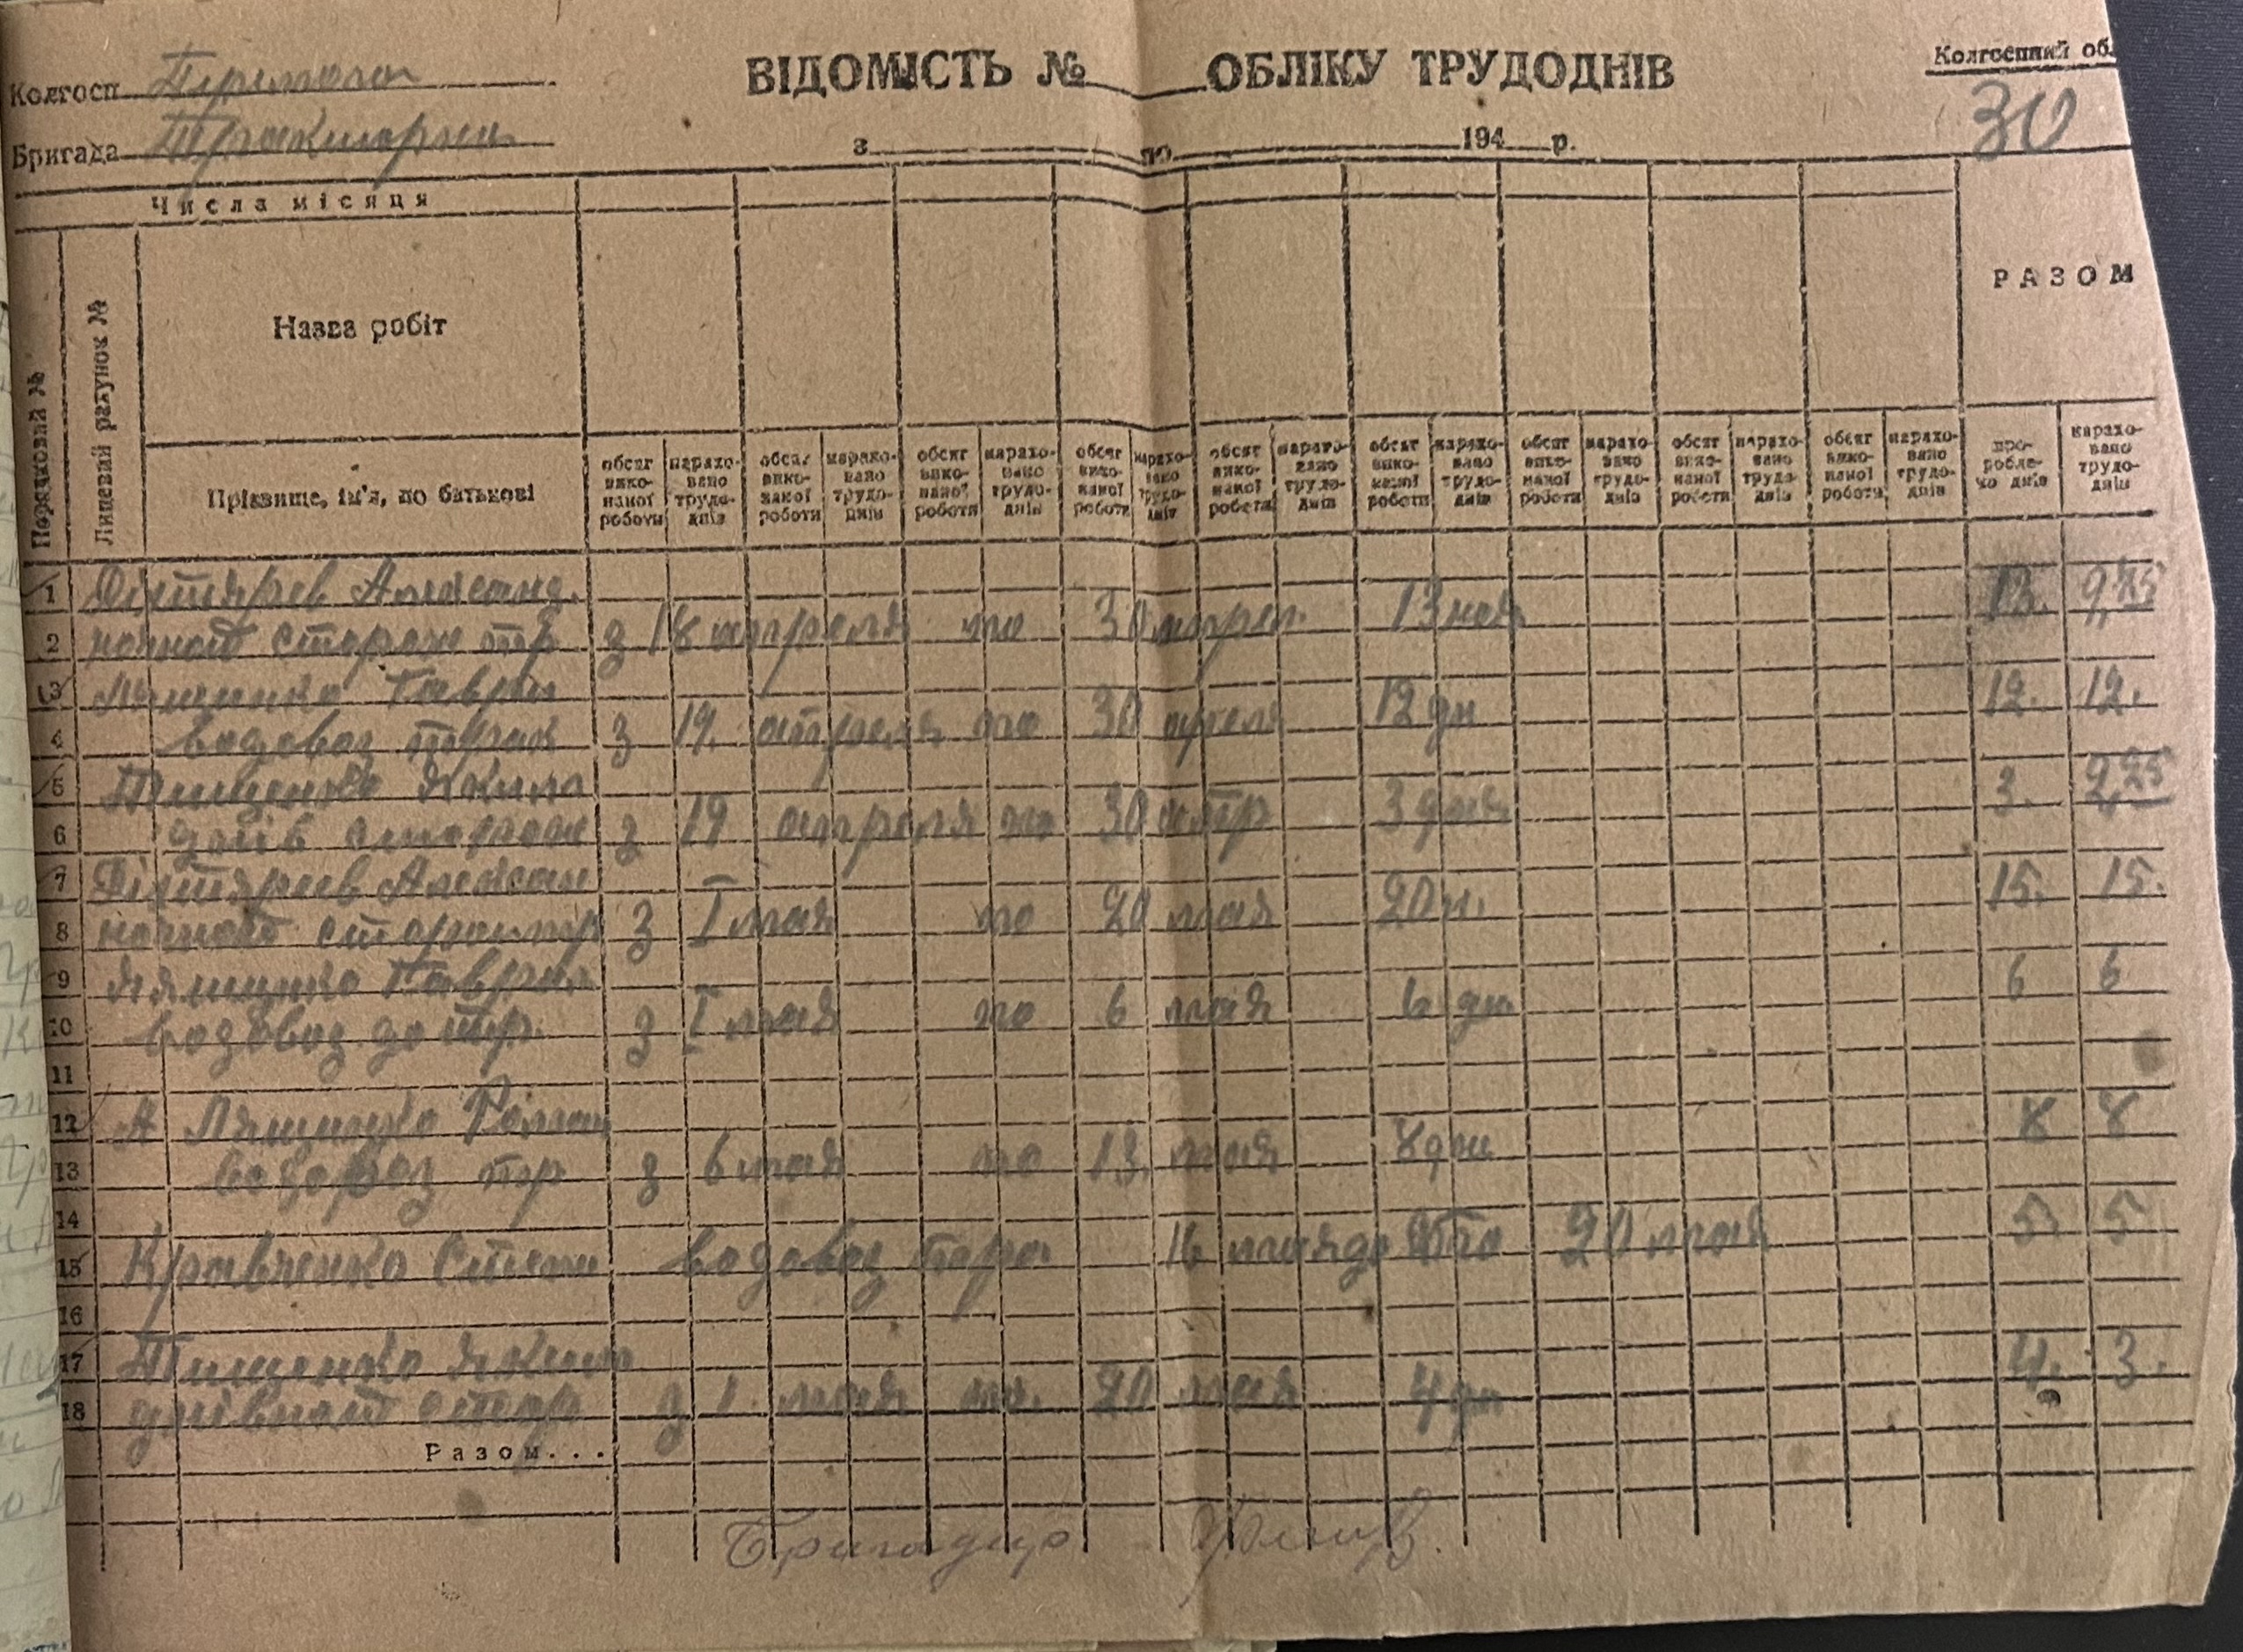 Колгосп Перемога
ВІДОМІСТЬ № ОБЛІКУ ТРУДОДНІВ
Колгоспний об
30
Бригада Тракторна
з по 194 р.
Числа місяця
Порядковий №
Лицевий рахунок №
Назва робіт
РАЗОМ
Прізвище, ім'я, по батькові
обсяг виконаної роботи нараховано трудоднів обсяг виконаної роботи нараховано трудоднів обсяг виконаної роботи нараховано трудоднів обсяг виконаної роботи нараховано трудоднів обсяг виконаної роботи нараховано трудоднів обсяг виконаної роботи нараховано трудоднів обсяг виконаної роботи нараховано трудоднів обсяг виконаної роботи нараховано трудоднів обсяг виконаної роботи нараховано трудоднів пророблено днів нараховано трудоднів
1 Дігтярев Александ. 13. 9,75
2 ночной сторож тр з 18 апреля по 30 апрел. 13
3 Гаврил 12. 12.
4 водовоз трак з 19. апреля по 30 апреля 12 дн
5 Тищенко Яким 3. 2,25
6 днів сторож з 19 апреля по 30 апр 3 дня
7 Дігтярев Алексан 15. 15.
8 ночной сторож тр з I мая по 20 мая 20 н.
9 Лященко Гаврил 6 6
10 водовоз до тр. з I мая по 6 мая 6 дн
11
12 Лященко Роман 8 8
13 водовоз тр з 6 мая по 13. мая 8 дн
14
15 Кравченко Степ водовоз тра 16 мая по 20 мая 5 5
16
17 Тищенко Яким 4. 3.
18 днівной стор з 1 мая по 20 мая 4 дн
Разом...
Бригадир